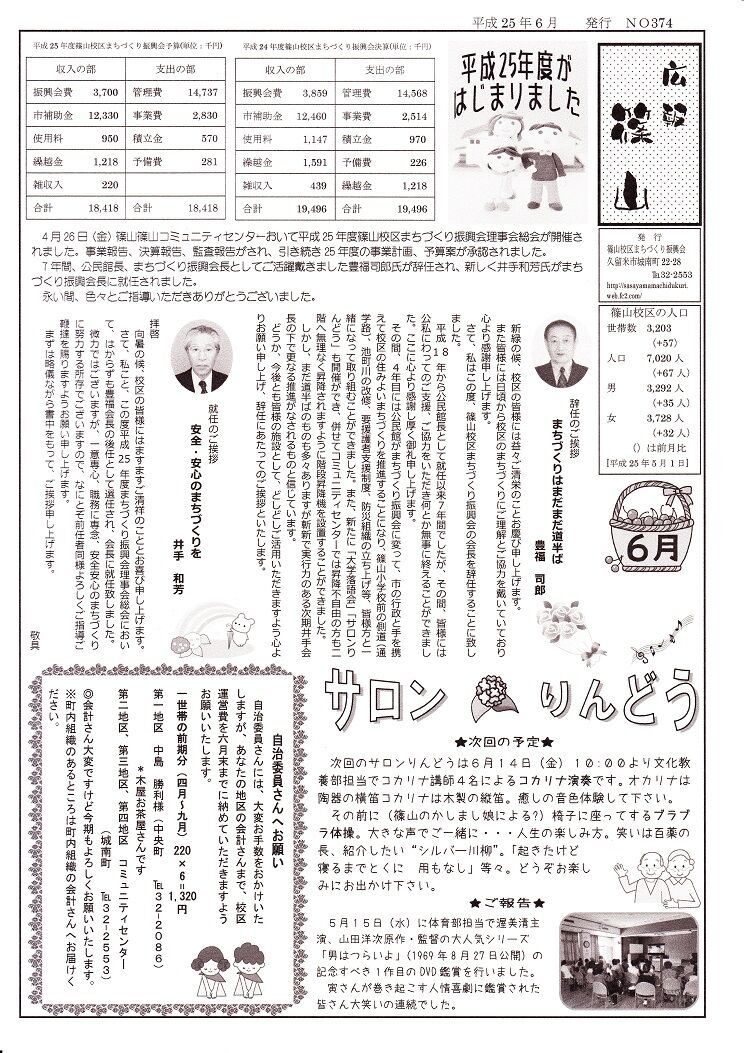 平成25年6月　　発行　NO374
広報
篠山
発行
篠山校区まちづくり振興会
久留米市城南町22-28
℡32-2553
http://sasayamamachidukuri.
web.fc2.com/
篠山校区の人口
世帯数　3,203
(+57)
人口　7,020人
(+67人)
男　3,292人
(+35人)
女　3,728人
(+32人)
（）は前月比
【平成25年5月1日】
6月
平成25年度が
はじまりました
平成24年度篠山校区まちづくり振興会決算(単位：千円)
収入の部　支出の部
振興会費　3,859　管理費　14,568
市補助金　12,460　事業費　2,514
使用料　1,147　積立金　970
繰越金　1,591　予備費　226
雑収入　439　繰越金　1,218
合計　19,496　合計　19,496
平成25年度篠山校区まちづくり振興会予算(単位：千円)
収入の部　支出の部
振興会費　3,700　管理費　14,737
市補助金　12,330　事業費　2,830
使用料　950　積立金　570
繰越金　1,218　予備費　281
雑収入　220
合計　18,418　合計　18,418
4月26日（金）篠山篠山コミュニティセンターおいて平成25年度篠山校区まちづくり振興会理事会総会が開催さ
れました。事業報告、決算報告、監査報告がされ、引き続き25年度の事業計画、予算案が承認されました。
7年間、公民館長、まちづくり振興会長としてご活躍戴きました豊福司郎氏が辞任され、新しく井手和芳氏がまち
づくり振興会長に就任されました。
永い間、色々とご指導いただきありがとうございました。
辞任のご挨拶
まちづくりはまだまだ道半ば
豊福　司郎
新緑の候、校区の皆様には益々ご清栄のこととお慶び申し上げます。
また皆様には日頃から校区のまちづくりにご理解とご協力を戴いており
心より感謝申し上げます。
さて、私はこの度、篠山校区まちづくり振興会の会長を辞任することに致し
ました。
平成18年から公民館長として就任以来7年間でしたが、その間、皆様には
公私にわたってのご支援、ご協力をいただき何とか無事に終えることができまし
た。ここに心より感謝し厚く御礼申し上げます。
その間、4年目には公民館がまちづくり振興会に変って、市の行政と手を携
えて校区の住みよいまちづくりを推進することになり、篠山小学校前の側道（通
学路）、池町川の改修、要援護者支援制度、防災組織の立ち上げ等、皆様方と一
緒になって取り組むことができました。また、新たに「大学落語会」「サロンり
んどう」も開催ができ、併せてコミュニティセンターでは昇降不自由の方も二
階へ無理なく昇降されますように階段昇降機を設置することができました。
しかし、まだ道半ばのものも多々ありますが斬新で実行力のある次期井手会
長の下で更なる推進がなされるものと信じています。
どうか、今後とも皆様の施設として、どしどしご活用いただきますよう心よ
りお願い申し上げ、辞任にあたってのご挨拶といたします。
就任のご挨拶
安全・安心のまちづくりを
井手　和芳
拝啓
向暑の候、校区の皆様にはますますご清祥のこととお喜び申し上げます。
さて、私こと、この度平成25年度まちづくり振興会理事会総会におい
て、はからずも豊福会長の後任として選任され、会長に就任致しました。
微力ではございますが、一意専心、職務に専念、安全安心のまちづくり
に努力する所存でございますので、なにとぞ前任者同様よろしくご指導ご
鞭撻を賜りますようお願い申し上げます。
まずは略儀ながら書中をもって、ご挨拶申し上げます。
敬具
サロン　りんどう
★次回の予定★
次回のサロンりんどうは6月14日（金）10:00より文化教
養部担当でコカリナ講師4名によるコカリナ演奏です。オカリナは
陶器の横笛コカリナは木製の縦笛。癒しの音色体験して下さい。
その前に（篠山のかしまし娘による?）椅子に座ってするブラブ
ラ体操。大きな声でご一緒に・・・人生の楽しみ方。笑いは百薬の
長、紹介したい“シルバー川柳”。「起きたけど
寝るまでとくに　用もなし」等々。どうぞお楽し
みにお出かけ下さい。
★ご報告★
5月15日（水）に体育部担当で渥美清主
演、山田洋次原作・監督の大人気シリーズ
「男はつらいよ」（1969年8月27日公開）の
記念すべき1作目のDVD鑑賞を行いました。
寅さんが巻き起こす人情喜劇に鑑賞された
皆さん大笑いの連続でした。
自治委員さんへお願い
自治委員さんには、大変お手数をおかけいた
しますが、あなたの地区の会計さんまで、校区
運営費を六月末までに納めていただきますよう
お願いいたします。
一世帯の前期分（四月～九月）220×6＝1,320円
第一地区　中島　勝利様（中央町　℡32-2086）
＊木屋お茶屋さんです
第二地区、第三地区、第四地区　コミュニティセンター
（城南町　℡32-2553）
◎会計さん大変ですけど今期もよろしくお願いいたします。
※町内組織のあるところは町内組織の会計さんへお届けく
ださい。